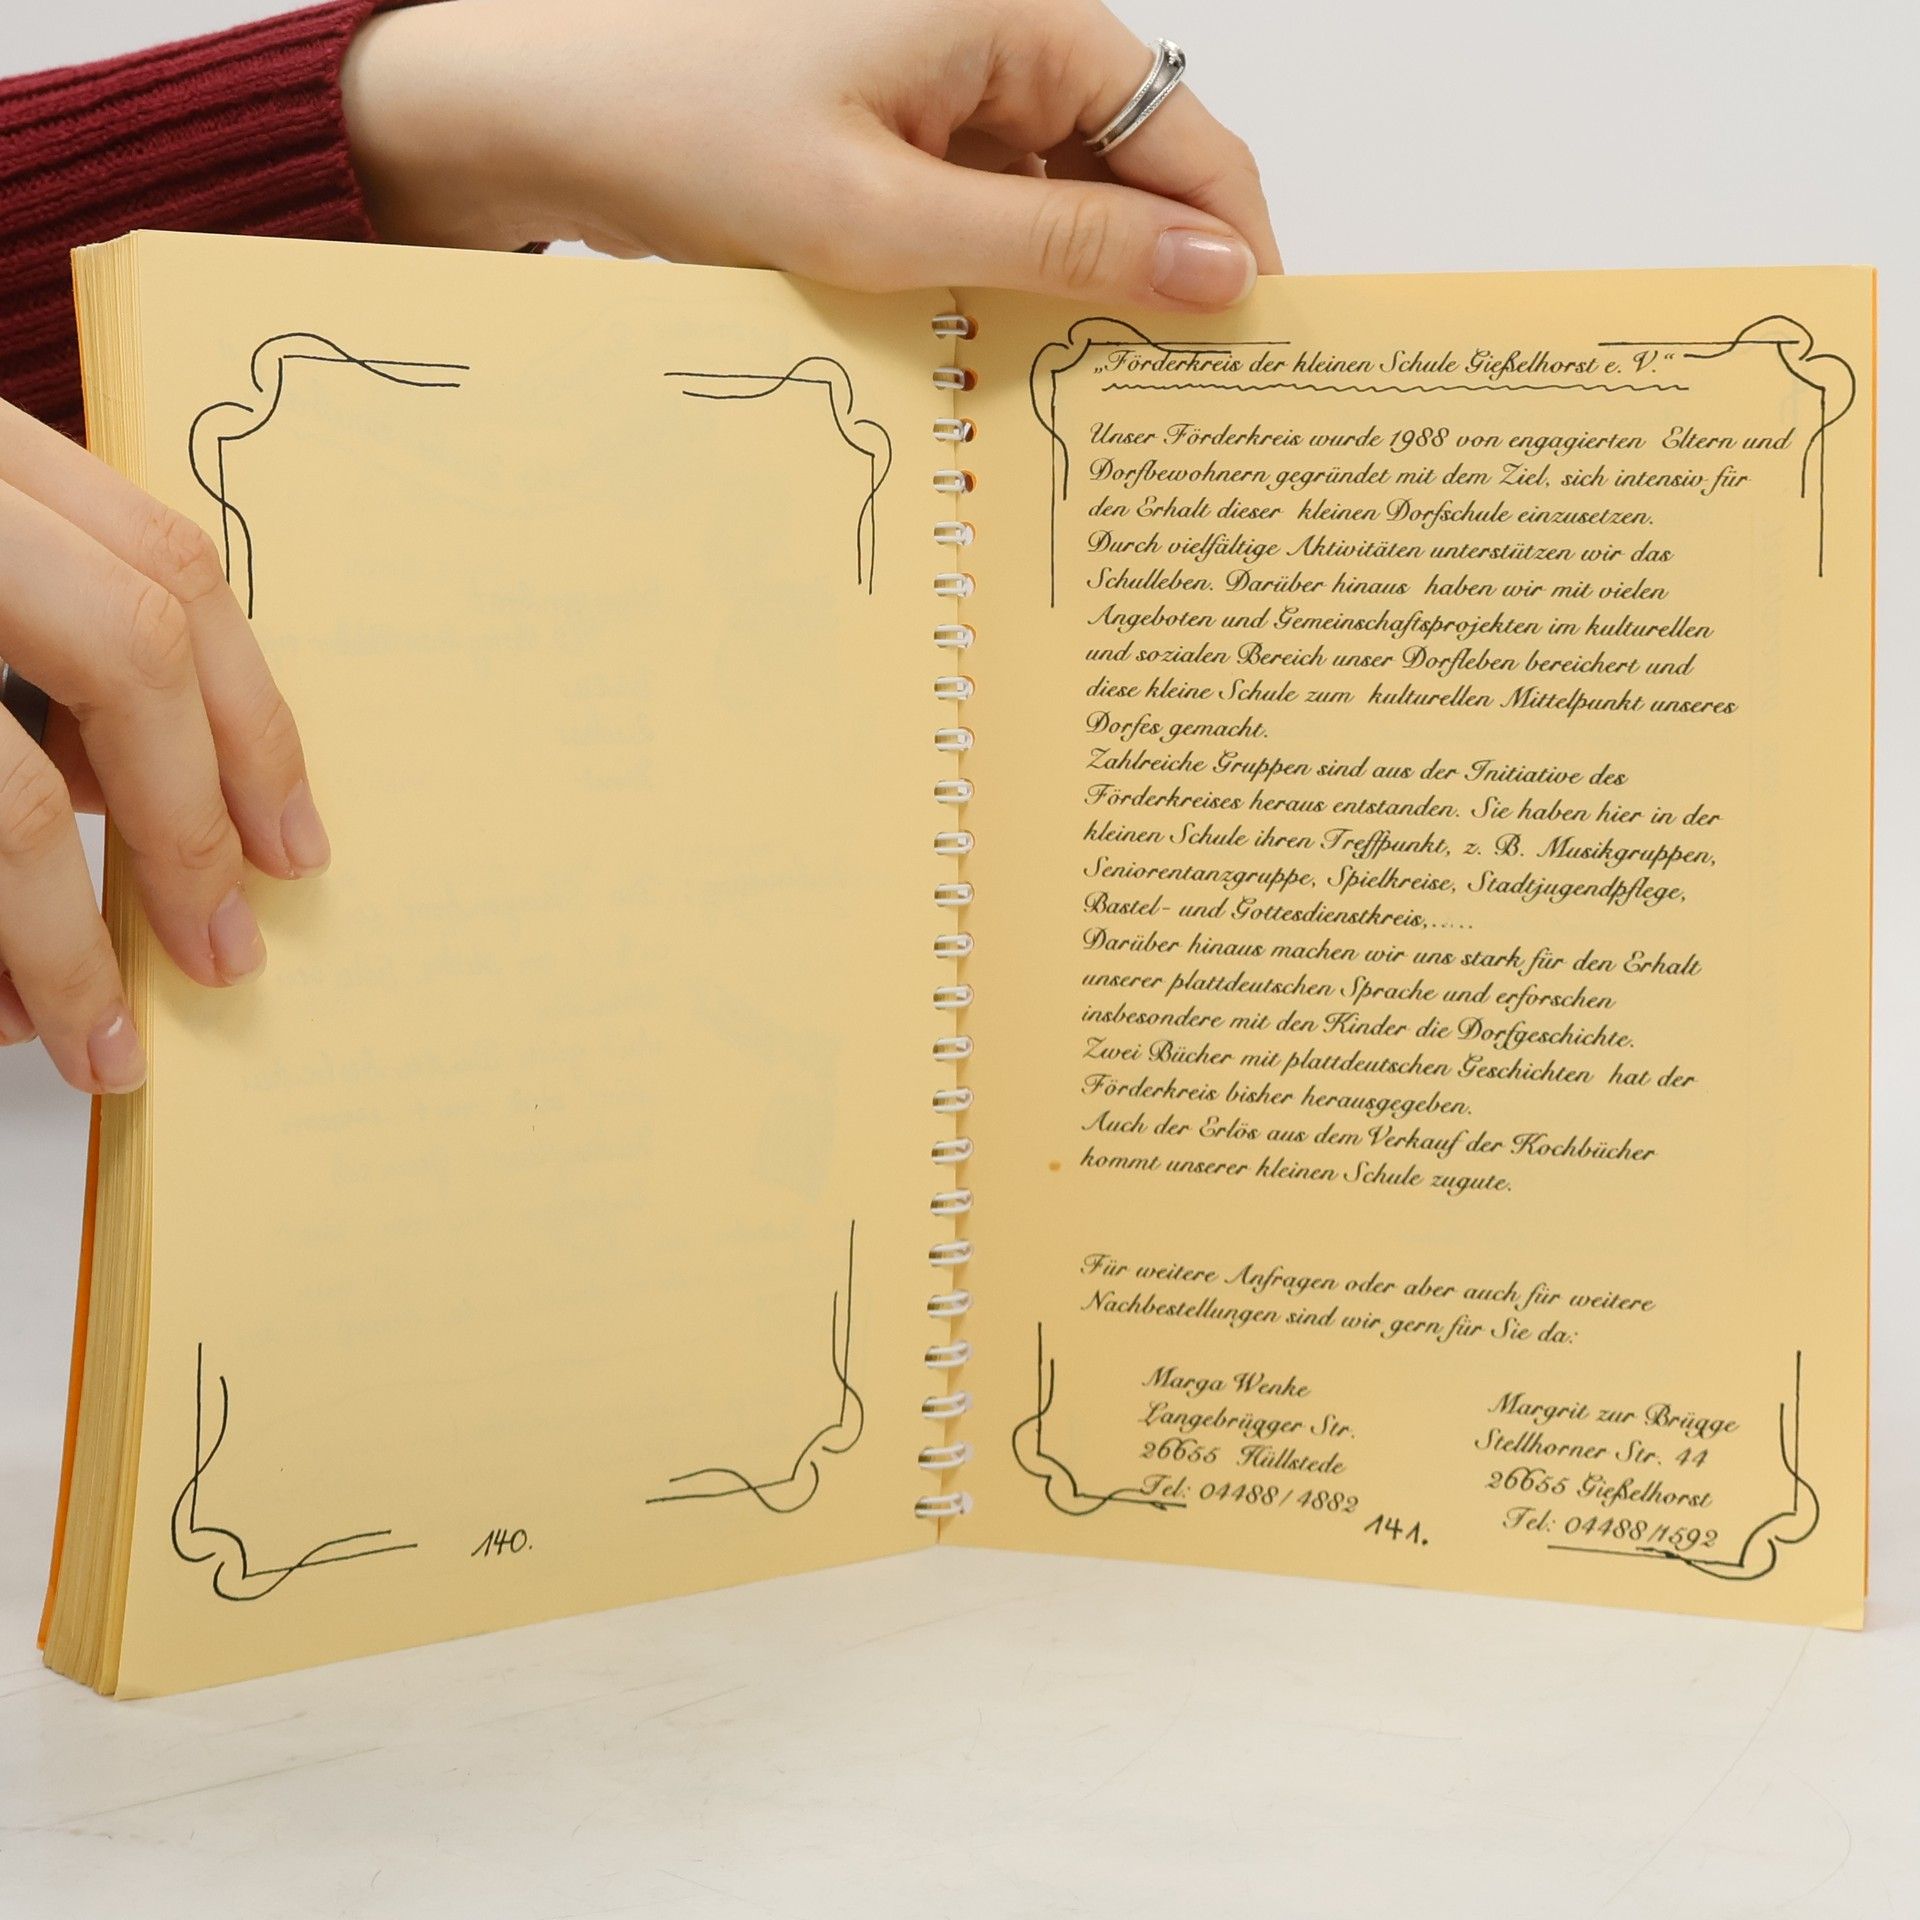 140.
„Förderkreis der kleinen Schule Gießelhorst e. V.“
Unser Förderkreis wurde 1988 von engagierten Eltern und
Dorfbewohnern gegründet mit dem Ziel, sich intensiv für
den Erhalt dieser kleinen Dorfschule einzusetzen.
Durch vielfältige Aktivitäten unterstützen wir das
Schulleben. Darüber hinaus haben wir mit vielen
Angeboten und Gemeinschaftsprojekten im kulturellen
und sozialen Bereich unser Dorfleben bereichert und
diese kleine Schule zum kulturellen Mittelpunkt unseres
Dorfes gemacht.
Zahlreiche Gruppen sind aus der Initiative des
Förderkreises heraus entstanden. Sie haben hier in der
kleinen Schule ihren Treffpunkt, z. B. Musikgruppen,
Seniorentanzgruppe, Spielkreise, Stadtjugendpflege,
Bastel- und Gottesdienstkreis,.....
Darüber hinaus machen wir uns stark für den Erhalt
unserer plattdeutschen Sprache und erforschen
insbesondere mit den Kinder die Dorfgeschichte.
Zwei Bücher mit plattdeutschen Geschichten hat der
Förderkreis bisher herausgegeben.
Auch der Erlös aus dem Verkauf der Kochbücher
kommt unserer kleinen Schule zugute.
Für weitere Anfragen oder aber auch für weitere
Nachbestellungen sind wir gern für Sie da:
Marga Wenke
Langebrügger Str.
26655 Hüllstede
Tel: 04488/4882
Margrit zur Brügge
Stellhorner Str. 44
26655 Gießelhorst
Tel: 04488/1592
141.